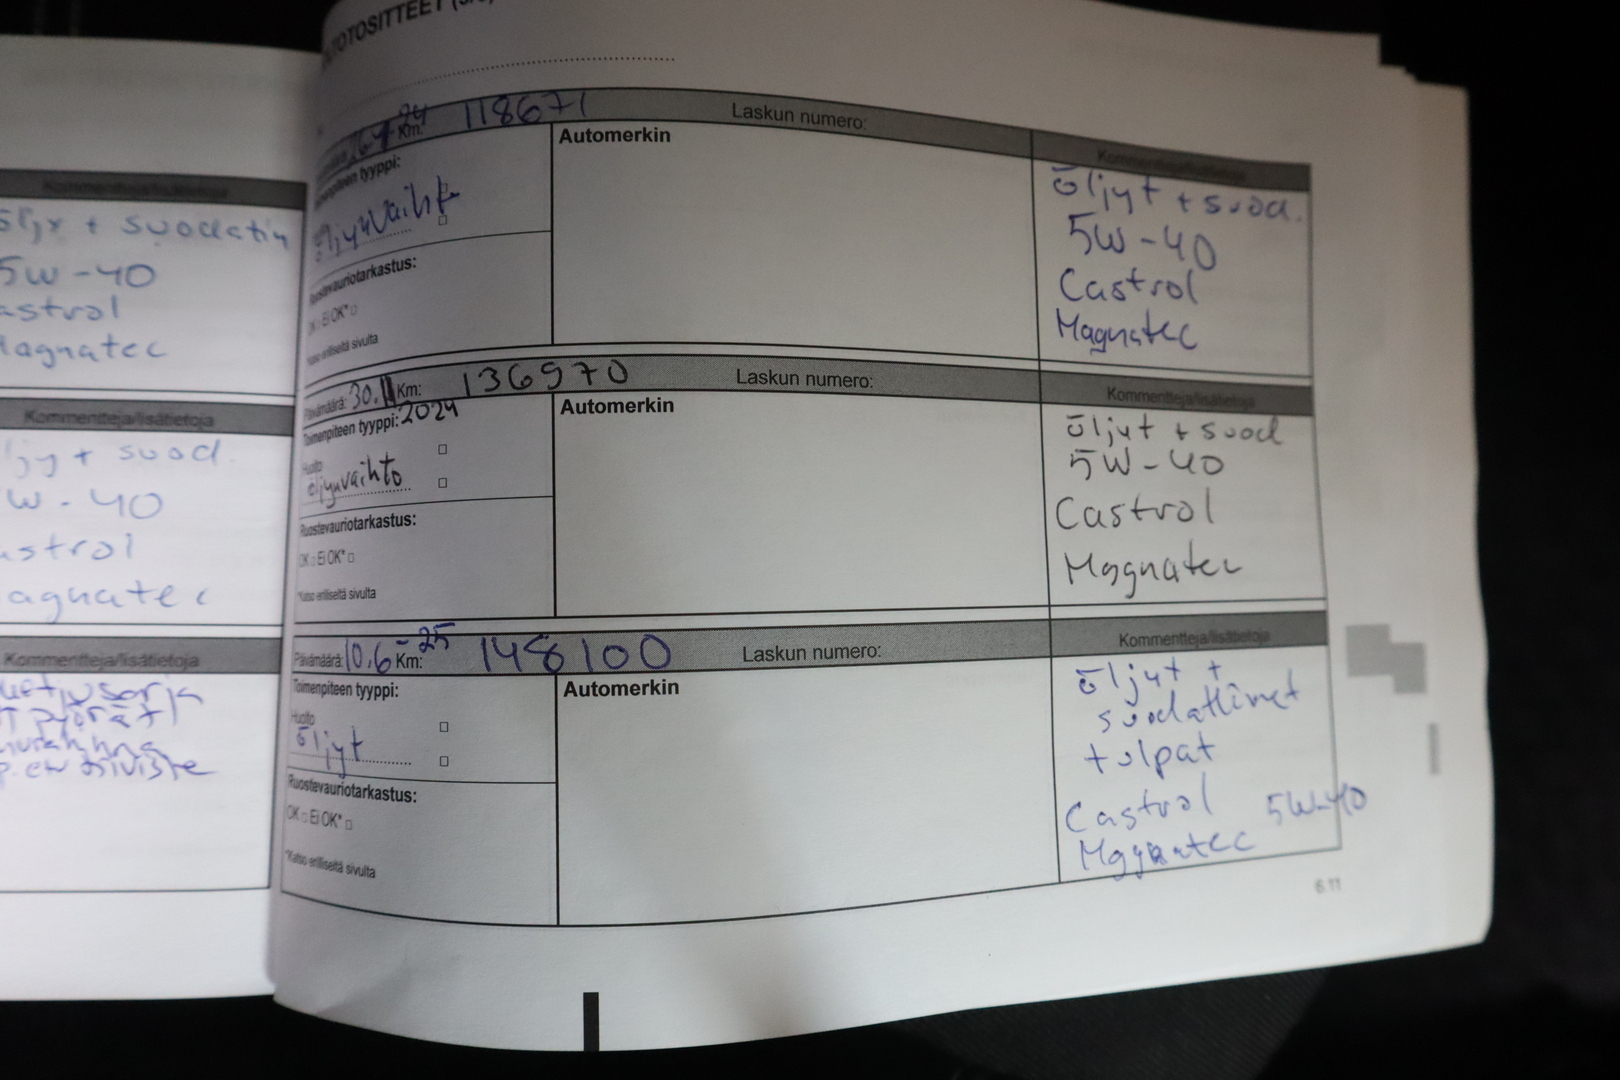 Kommentteja/lisätietoja
öljy + suodatin
5W-40
astrol
agnatec
Kommentteja/lisätietoja
+ suod.
W-40
astrol
agnatec
Kommentteja/lisätietoja
-24
Km: 118671 Laskun numero:
tyyppi:
öljynvaiht
Ruostevauriotarkastus:
OK □ Ei OK* □
*Katso erilliseltä sivulta
Automerkin
Kommentteja/lisätietoja
öljyt + suod.
5W-40
Castrol
Magnatec
Päivämäärä: 30. Km: 136970 Laskun numero:
Toimenpiteen tyyppi: 2024
Huolto □
öljynvaihto □
Ruostevauriotarkastus:
OK □ Ei OK* □
*Katso erilliseltä sivulta
Automerkin
Kommentteja/lisätietoja
öljyt + suod
5W-40
Castrol
Magnatec
Päivämäärä: 10.6-25 Km: 148100 Laskun numero:
Toimenpiteen tyyppi:
Huolto □
öljyt □
Ruostevauriotarkastus:
OK □ Ei OK* □
*Katso erilliseltä sivulta
Automerkin
Kommentteja/lisätietoja
öljyt +
suodattimet
tulpat
Castrol 5W-40
Magnatec
6.11